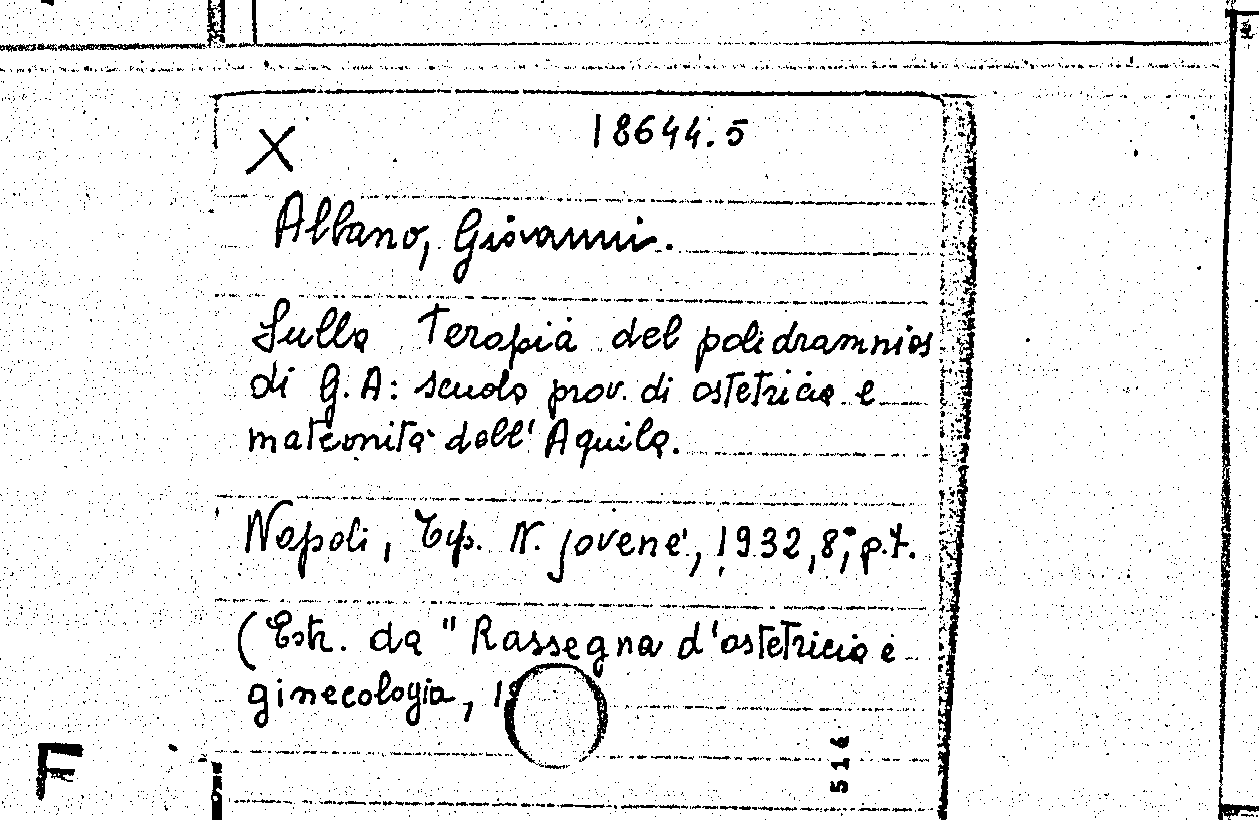 X 18644.5
Albano, Giovanni.
Sulla terapia del polidramnios
di G. A: scuola prov. di ostetricia e
maternità dell' Aquila.
Napoli, Tip. N. Jovene, 1932, 8°, p.t.
(Estr. da " Rassegna d'ostetricia e
ginecologia, 19
516
F